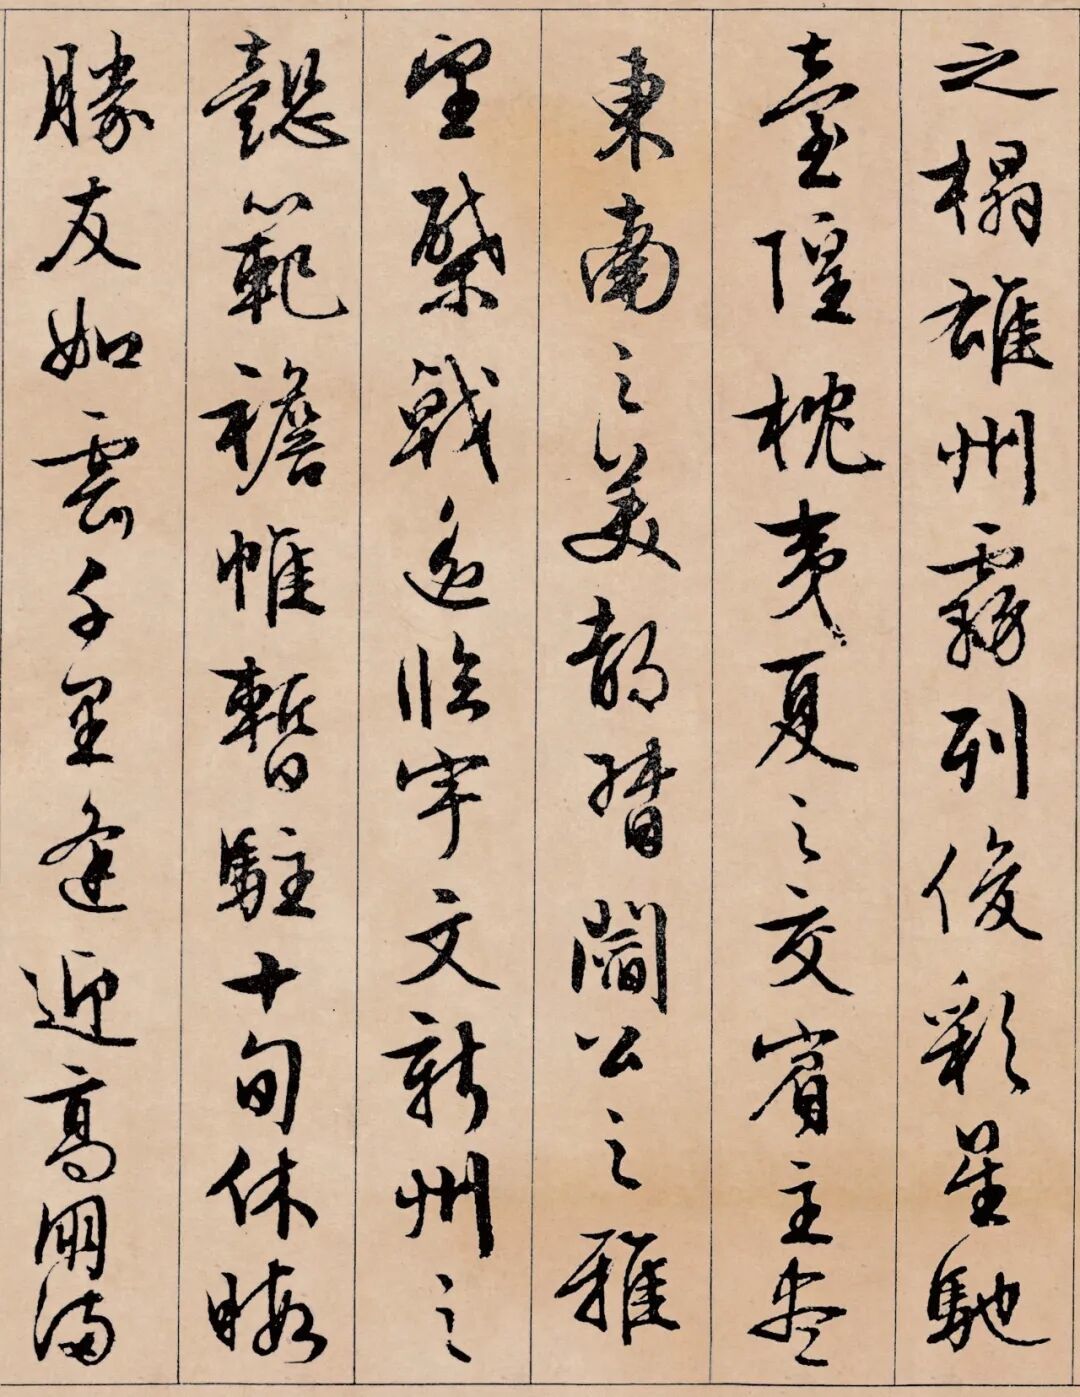 之榻雄州霧列俊彩星馳
臺隍枕夷夏之交賓主盡
東南之美都督閻公之雅
望棨戟遥臨宇文新州之
懿範襜帷暫駐十旬休暇
勝友如雲千里逢迎高朋滿